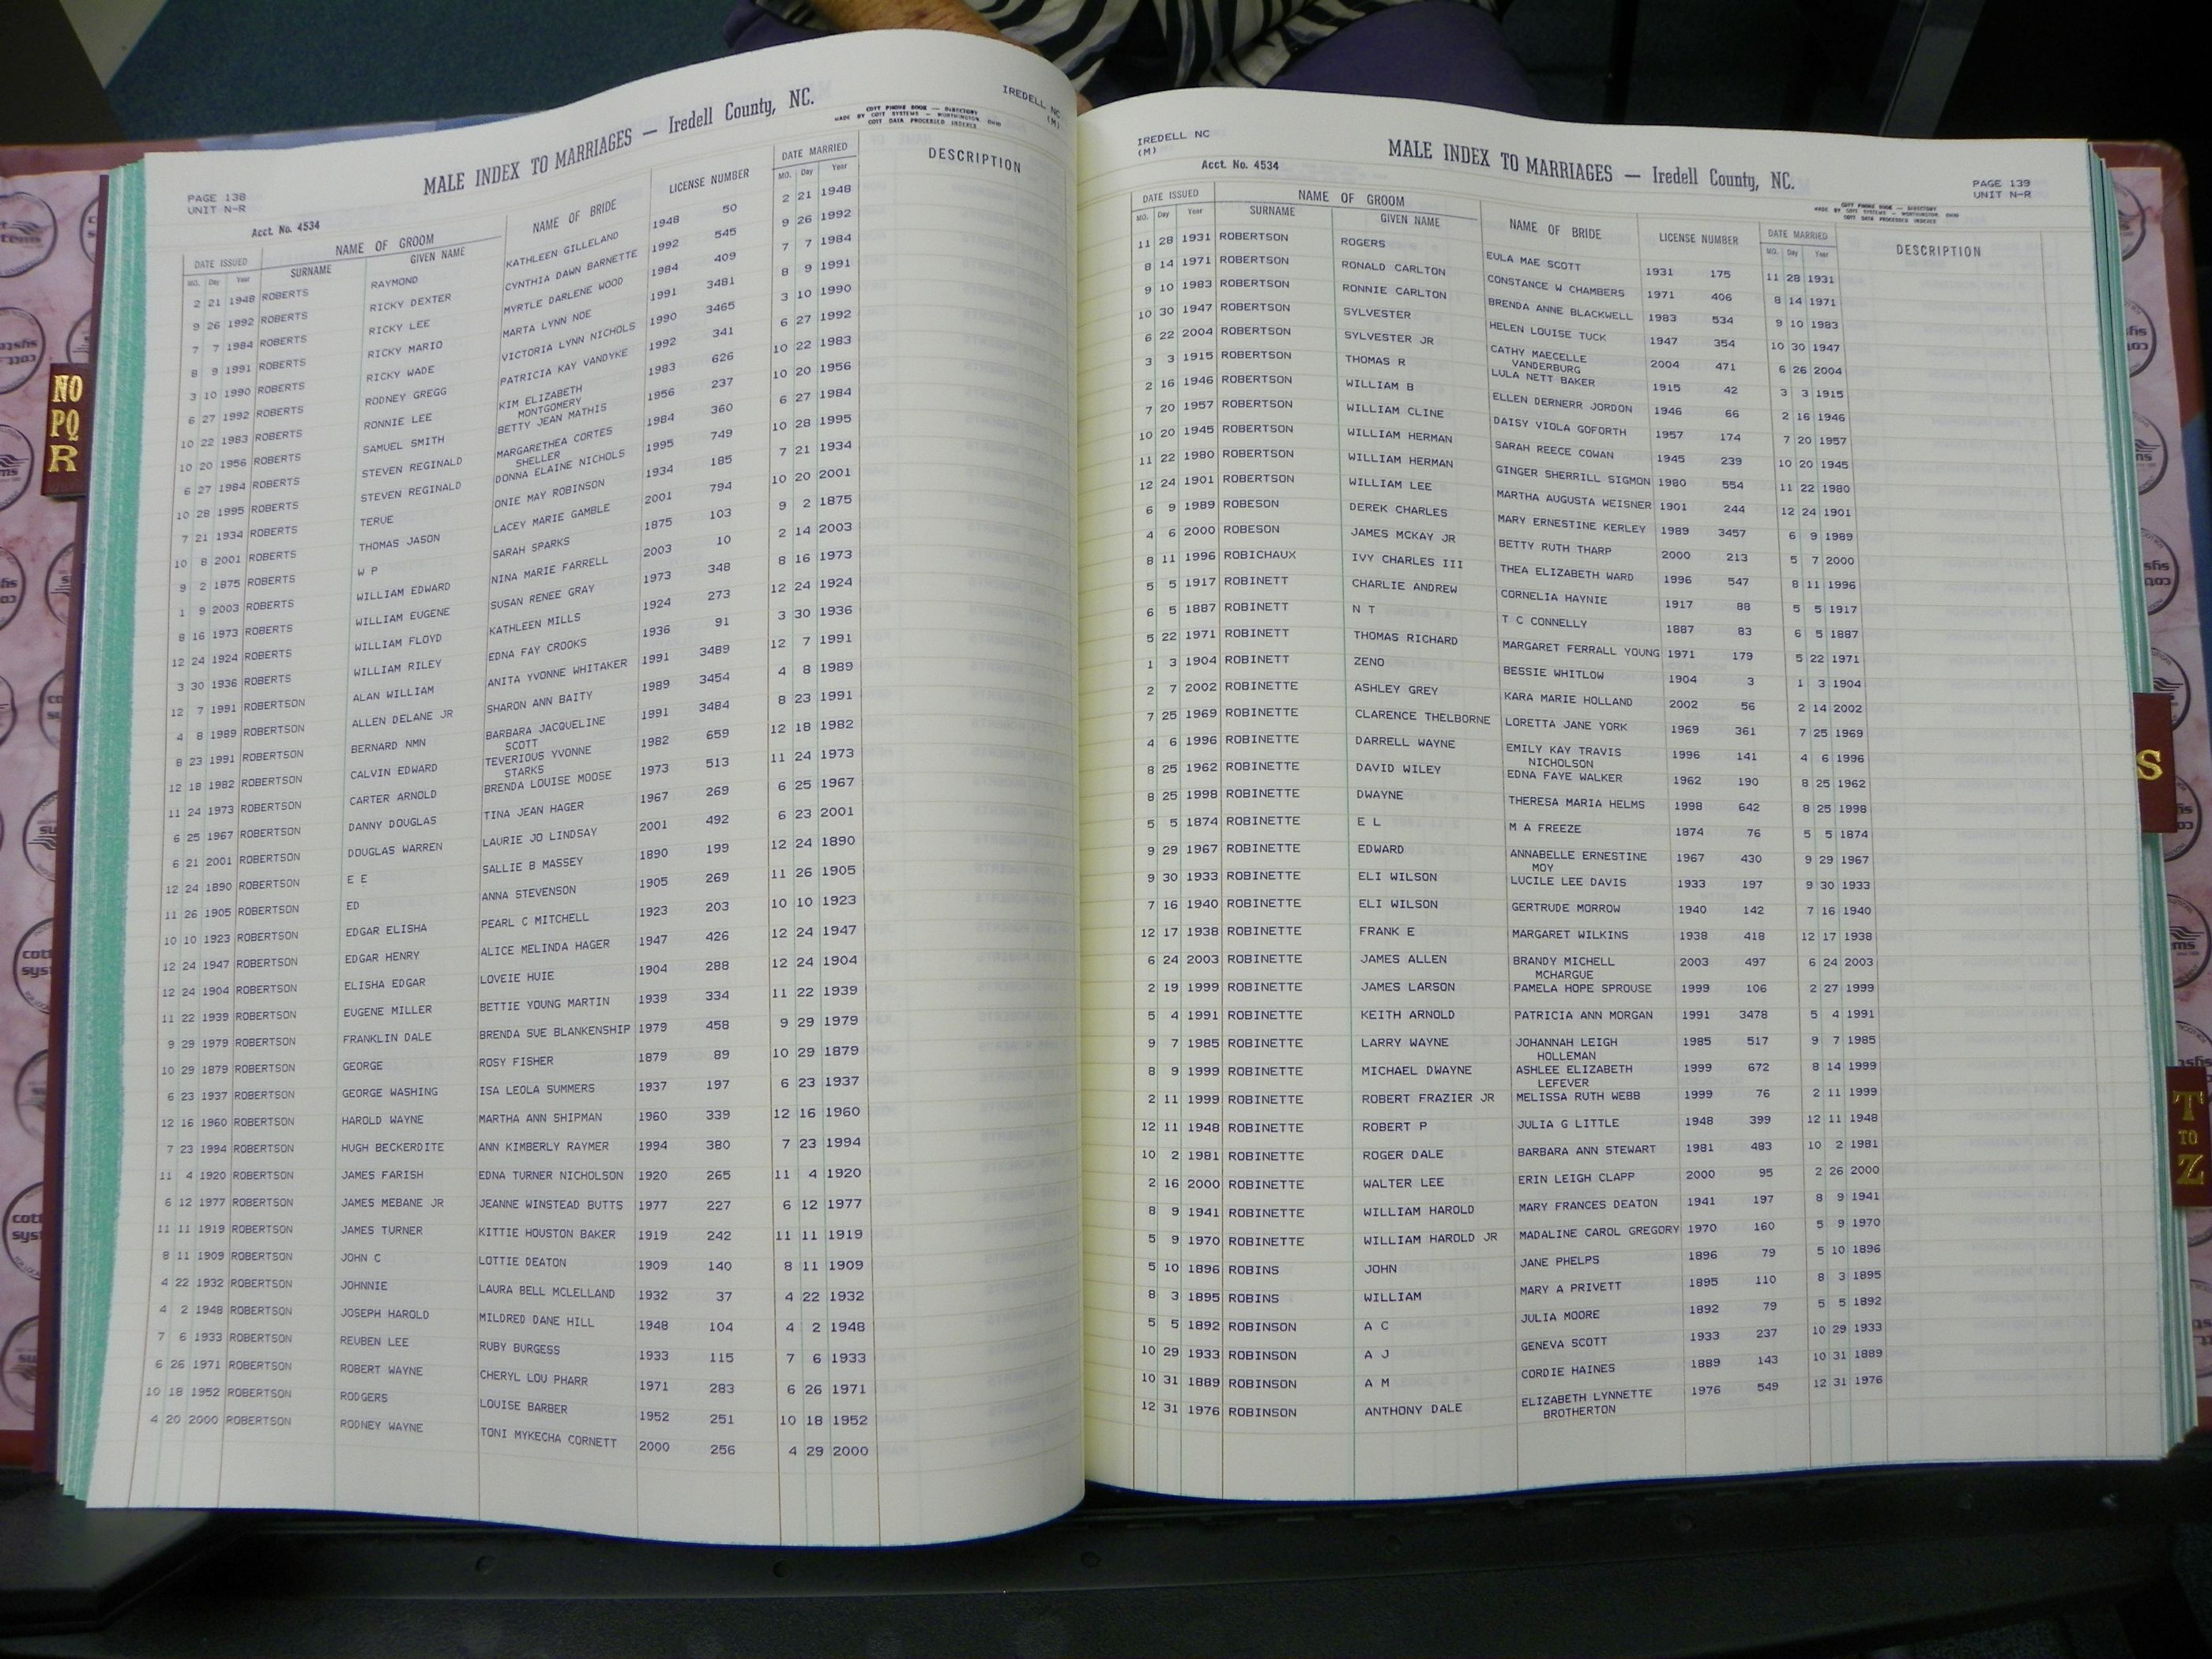 IREDELL NC
(M)
MALE INDEX TO MARRIAGES — Iredell County, NC.
COTT PHONE BOOK — DIRECTORY
MADE BY COTT SYSTEMS — WORTHINGTON, OHIO
COTT DATA PROCESSED INDEXES
PAGE 138
UNIT N-R
Acct. No. 4534
DATE ISSUED NAME OF GROOM NAME OF BRIDE LICENSE NUMBER DATE MARRIED DESCRIPTION
MO. Day Year SURNAME GIVEN NAME MO. Day Year
2 21 1948 ROBERTS RAYMOND KATHLEEN GILLELAND 1948 50 2 21 1948
9 26 1992 ROBERTS RICKY DEXTER CYNTHIA DAWN BARNETTE 1992 545 9 26 1992
7 7 1984 ROBERTS RICKY LEE MYRTLE DARLENE WOOD 1984 409 7 7 1984
8 9 1991 ROBERTS RICKY MARIO MARTA LYNN NOE 1991 3481 8 9 1991
3 10 1990 ROBERTS RICKY WADE VICTORIA LYNN NICHOLS 1990 3465 3 10 1990
6 27 1992 ROBERTS RODNEY GREGG PATRICIA KAY VANDYKE 1992 341 6 27 1992
10 22 1983 ROBERTS RONNIE LEE KIM ELIZABETH 1983 626 10 22 1983
MONTGOMERY
10 20 1956 ROBERTS SAMUEL SMITH BETTY JEAN MATHIS 1956 237 10 20 1956
6 27 1984 ROBERTS STEVEN REGINALD MARGARETHEA CORTES 1984 360 6 27 1984
SHELLER
10 28 1995 ROBERTS STEVEN REGINALD DONNA ELAINE NICHOLS 1995 749 10 28 1995
7 21 1934 ROBERTS TERUE ONIE MAY ROBINSON 1934 185 7 21 1934
10 8 2001 ROBERTS THOMAS JASON LACEY MARIE GAMBLE 2001 794 10 20 2001
9 2 1875 ROBERTS W P SARAH SPARKS 1875 103 9 2 1875
1 9 2003 ROBERTS WILLIAM EDWARD NINA MARIE FARRELL 2003 10 2 14 2003
8 16 1973 ROBERTS WILLIAM EUGENE SUSAN RENEE GRAY 1973 348 8 16 1973
12 24 1924 ROBERTS WILLIAM FLOYD KATHLEEN MILLS 1924 273 12 24 1924
3 30 1936 ROBERTS WILLIAM RILEY EDNA FAY CROOKS 1936 91 3 30 1936
12 7 1991 ROBERTSON ALAN WILLIAM ANITA YVONNE WHITAKER 1991 3489 12 7 1991
4 8 1989 ROBERTSON ALLEN DELANE JR SHARON ANN BAITY 1989 3454 4 8 1989
8 23 1991 ROBERTSON BERNARD NMN BARBARA JACQUELINE 1991 3484 8 23 1991
SCOTT
12 18 1982 ROBERTSON CALVIN EDWARD TEVERIOUS YVONNE 1982 659 12 18 1982
STARKS
11 24 1973 ROBERTSON CARTER ARNOLD BRENDA LOUISE MOOSE 1973 513 11 24 1973
6 25 1967 ROBERTSON DANNY DOUGLAS TINA JEAN HAGER 1967 269 6 25 1967
6 21 2001 ROBERTSON DOUGLAS WARREN LAURIE JO LINDSAY 2001 492 6 23 2001
12 24 1890 ROBERTSON E E SALLIE B MASSEY 1890 199 12 24 1890
11 26 1905 ROBERTSON ED ANNA STEVENSON 1905 269 11 26 1905
10 10 1923 ROBERTSON EDGAR ELISHA PEARL C MITCHELL 1923 203 10 10 1923
12 24 1947 ROBERTSON EDGAR HENRY ALICE MELINDA HAGER 1947 426 12 24 1947
12 24 1904 ROBERTSON ELISHA EDGAR LOVEIE HUIE 1904 288 12 24 1904
11 22 1939 ROBERTSON EUGENE MILLER BETTIE YOUNG MARTIN 1939 334 11 22 1939
9 29 1979 ROBERTSON FRANKLIN DALE BRENDA SUE BLANKENSHIP 1979 458 9 29 1979
10 29 1879 ROBERTSON GEORGE ROSY FISHER 1879 89 10 29 1879
6 23 1937 ROBERTSON GEORGE WASHING ISA LEOLA SUMMERS 1937 197 6 23 1937
12 16 1960 ROBERTSON HAROLD WAYNE MARTHA ANN SHIPMAN 1960 339 12 16 1960
7 23 1994 ROBERTSON HUGH BECKERDITE ANN KIMBERLY RAYMER 1994 380 7 23 1994
11 4 1920 ROBERTSON JAMES FARISH EDNA TURNER NICHOLSON 1920 265 11 4 1920
6 12 1977 ROBERTSON JAMES MEBANE JR JEANNE WINSTEAD BUTTS 1977 227 6 12 1977
11 11 1919 ROBERTSON JAMES TURNER KITTIE HOUSTON BAKER 1919 242 11 11 1919
8 11 1909 ROBERTSON JOHN C LOTTIE DEATON 1909 140 8 11 1909
4 22 1932 ROBERTSON JOHNNIE LAURA BELL MCLELLAND 1932 37 4 22 1932
4 2 1948 ROBERTSON JOSEPH HAROLD MILDRED DANE HILL 1948 104 4 2 1948
7 6 1933 ROBERTSON REUBEN LEE RUBY BURGESS 1933 115 7 6 1933
6 26 1971 ROBERTSON ROBERT WAYNE CHERYL LOU PHARR 1971 283 6 26 1971
10 18 1952 ROBERTSON RODGERS LOUISE BARBER 1952 251 10 18 1952
4 20 2000 ROBERTSON RODNEY WAYNE TONI MYKECHA CORNETT 2000 256 4 29 2000
IREDELL NC
(M)
Acct. No. 4534
MALE INDEX TO MARRIAGES — Iredell County, NC.
PAGE 139
UNIT N-R
COTT PHONE BOOK — DIRECTORY
MADE BY COTT SYSTEMS — WORTHINGTON, OHIO
COTT DATA PROCESSED INDEXES
DATE ISSUED NAME OF GROOM NAME OF BRIDE LICENSE NUMBER DATE MARRIED DESCRIPTION
MO. Day Year SURNAME GIVEN NAME MO. Day Year
11 28 1931 ROBERTSON ROGERS EULA MAE SCOTT 1931 175 11 28 1931
8 14 1971 ROBERTSON RONALD CARLTON CONSTANCE W CHAMBERS 1971 406 8 14 1971
9 10 1983 ROBERTSON RONNIE CARLTON BRENDA ANNE BLACKWELL 1983 534 9 10 1983
10 30 1947 ROBERTSON SYLVESTER HELEN LOUISE TUCK 1947 354 10 30 1947
6 22 2004 ROBERTSON SYLVESTER JR CATHY MAECELLE 2004 471 6 26 2004
VANDERBURG
3 3 1915 ROBERTSON THOMAS R LULA NETT BAKER 1915 42 3 3 1915
2 16 1946 ROBERTSON WILLIAM B ELLEN DERNERR JORDON 1946 66 2 16 1946
7 20 1957 ROBERTSON WILLIAM CLINE DAISY VIOLA GOFORTH 1957 174 7 20 1957
10 20 1945 ROBERTSON WILLIAM HERMAN SARAH REECE COWAN 1945 239 10 20 1945
11 22 1980 ROBERTSON WILLIAM HERMAN GINGER SHERRILL SIGMON 1980 554 11 22 1980
12 24 1901 ROBERTSON WILLIAM LEE MARTHA AUGUSTA WEISNER 1901 244 12 24 1901
6 9 1989 ROBESON DEREK CHARLES MARY ERNESTINE KERLEY 1989 3457 6 9 1989
4 6 2000 ROBESON JAMES MCKAY JR BETTY RUTH THARP 2000 213 5 7 2000
8 11 1996 ROBICHAUX IVY CHARLES III THEA ELIZABETH WARD 1996 547 8 11 1996
5 5 1917 ROBINETT CHARLIE ANDREW CORNELIA HAYNIE 1917 88 5 5 1917
6 5 1887 ROBINETT N T T C CONNELLY 1887 83 6 5 1887
5 22 1971 ROBINETT THOMAS RICHARD MARGARET FERRALL YOUNG 1971 179 5 22 1971
1 3 1904 ROBINETT ZENO BESSIE WHITLOW 1904 3 1 3 1904
2 7 2002 ROBINETTE ASHLEY GREY KARA MARIE HOLLAND 2002 56 2 14 2002
7 25 1969 ROBINETTE CLARENCE THELBORNE LORETTA JANE YORK 1969 361 7 25 1969
4 6 1996 ROBINETTE DARRELL WAYNE EMILY KAY TRAVIS 1996 141 4 6 1996
NICHOLSON
8 25 1962 ROBINETTE DAVID WILEY EDNA FAYE WALKER 1962 190 8 25 1962
8 25 1998 ROBINETTE DWAYNE THERESA MARIA HELMS 1998 642 8 25 1998
5 5 1874 ROBINETTE E L M A FREEZE 1874 76 5 5 1874
9 29 1967 ROBINETTE EDWARD ANNABELLE ERNESTINE 1967 430 9 29 1967
MOY
9 30 1933 ROBINETTE ELI WILSON LUCILE LEE DAVIS 1933 197 9 30 1933
7 16 1940 ROBINETTE ELI WILSON GERTRUDE MORROW 1940 142 7 16 1940
12 17 1938 ROBINETTE FRANK E MARGARET WILKINS 1938 418 12 17 1938
6 24 2003 ROBINETTE JAMES ALLEN BRANDY MICHELL 2003 497 6 24 2003
MCHARGUE
2 19 1999 ROBINETTE JAMES LARSON PAMELA HOPE SPROUSE 1999 106 2 27 1999
5 4 1991 ROBINETTE KEITH ARNOLD PATRICIA ANN MORGAN 1991 3478 5 4 1991
9 7 1985 ROBINETTE LARRY WAYNE JOHANNAH LEIGH 1985 517 9 7 1985
HOLLEMAN
8 9 1999 ROBINETTE MICHAEL DWAYNE ASHLEE ELIZABETH 1999 672 8 14 1999
LEFEVER
2 11 1999 ROBINETTE ROBERT FRAZIER JR MELISSA RUTH WEBB 1999 76 2 11 1999
12 11 1948 ROBINETTE ROBERT P JULIA G LITTLE 1948 399 12 11 1948
10 2 1981 ROBINETTE ROGER DALE BARBARA ANN STEWART 1981 483 10 2 1981
2 16 2000 ROBINETTE WALTER LEE ERIN LEIGH CLAPP 2000 95 2 26 2000
8 9 1941 ROBINETTE WILLIAM HAROLD MARY FRANCES DEATON 1941 197 8 9 1941
5 9 1970 ROBINETTE WILLIAM HAROLD JR MADALINE CAROL GREGORY 1970 160 5 9 1970
5 10 1896 ROBINS JOHN JANE PHELPS 1896 79 5 10 1896
8 3 1895 ROBINS WILLIAM MARY A PRIVETT 1895 110 8 3 1895
5 5 1892 ROBINSON A C JULIA MOORE 1892 79 5 5 1892
10 29 1933 ROBINSON A J GENEVA SCOTT 1933 237 10 29 1933
10 31 1889 ROBINSON A M CORDIE HAINES 1889 143 10 31 1889
12 31 1976 ROBINSON ANTHONY DALE ELIZABETH LYNNETTE 1976 549 12 31 1976
BROTHERTON
NO
PQ
R
S
T
TO
Z